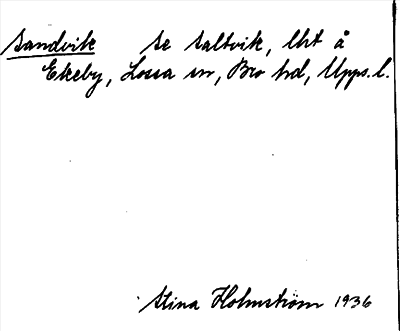 Sandvik Se Saltvik, lht å
Ekeby, Lossa sn, Bro hd, Upps. l.
Stina Holmström 1936